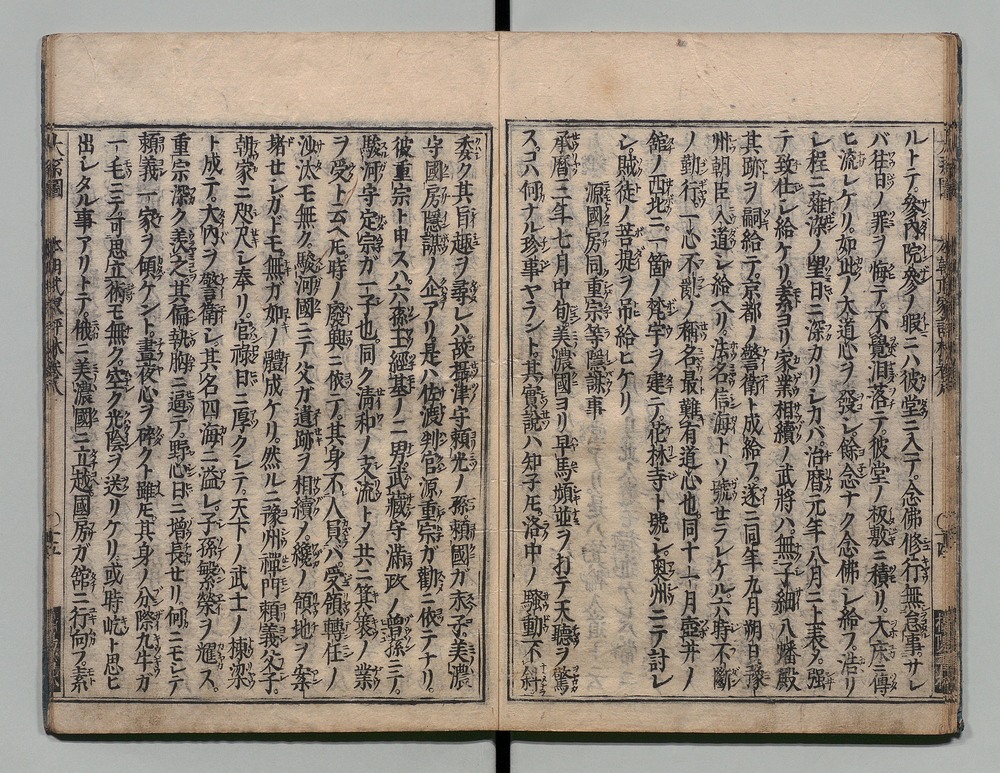 ルトテ。參內院參ノ暇ニハ彼堂ニ入テ。念佛修行無怠事。サレ
バ往日ノ罪ヲ悔テ。不覺泪落テ。彼堂ノ板敷ニ積リ。大床ニ傳
ヒ流レケリ。如此ノ大道心ヲ發シ。餘念ナク念佛シ給フ。浩リ
シ程ニ雜染ノ望日ニ深カリシカバ。治曆元年八月ニ上表乄。强
テ致仕シ給ケリ。素ヨリ家業相續ノ武將ハ無子細八幡殿
其跡ヲ嗣給テ。京都ノ警衛ト成給フ。遂ニ同年九月朔日豫
州朝臣入道シ給ヘリ。法名信海トソ號セラレケル。六時不斷
ノ勤行。一心不亂ノ稱名最難有道心也。同十一月壺井ノ
舘ノ西北ニ一箇ノ梵宇ヲ建テ。花林寺ト號シ。奧州ニテ討レ
シ。賊徒ノ菩提ヲ吊給ヒケリ。
源國房同重宗等隱謀事
承曆三年七月中旬美濃國ヨリ早馬頻並ヲ打テ天聽ヲ驚
ス。コハ何ナル珍事ヤラント。其實說ハ知子𪜈。洛中ノ騷動不斜
委ク其旨趣ヲ尋レハ故攝津守賴光ノ孫賴國ガ末子。美濃
守國房隱謀ノ企アリ。是ハ佐渡判官源重宗ガ勸ニ依テナリ。
彼重宗ト申スハ。六孫王經基ノ二男武藏守滿政ノ曾孫ニテ。
駿河守定宗ガ一子也。同ク淸和ノ支流トノ共ニ箕裘ノ業
ヲ受ト云ヘ𪜈。時ノ廢興ニ依テ。其身不入員バ。受領轉任ノ
沙汰モ無ク。駿河國ニテ父ガ遺跡ヲ相續ノ。纔ノ領地ヲ案
堵セシガドモ。無ガ如ノ體成ケリ。然ルニ豫洲禪門賴義父子。
朝家ニ咫尺シ奉リ。官祿日ニ厚クレテ。天下ノ武士ノ棟梁
ト成テ。大內ヲ警衛シ其名四海ニ溢レ。子孫繁榮ヲ耀ス。
重宗深ク羨之其偏執胸ニ逼テ。野心日ニ增長セリ。何ニモレテ
賴義一家ヲ傾ケント。晝夜心ヲ碎クト雖𪜈。其身ノ分際九牛ガ
一毛ニテ。可思立術モ無ク。空ク光陰ヲ送リケリ。或時屹ト思ヒ
出レタル事アリトテ。樴ニ美濃國ニ立越。國房ガ舘ニ行向フ。素